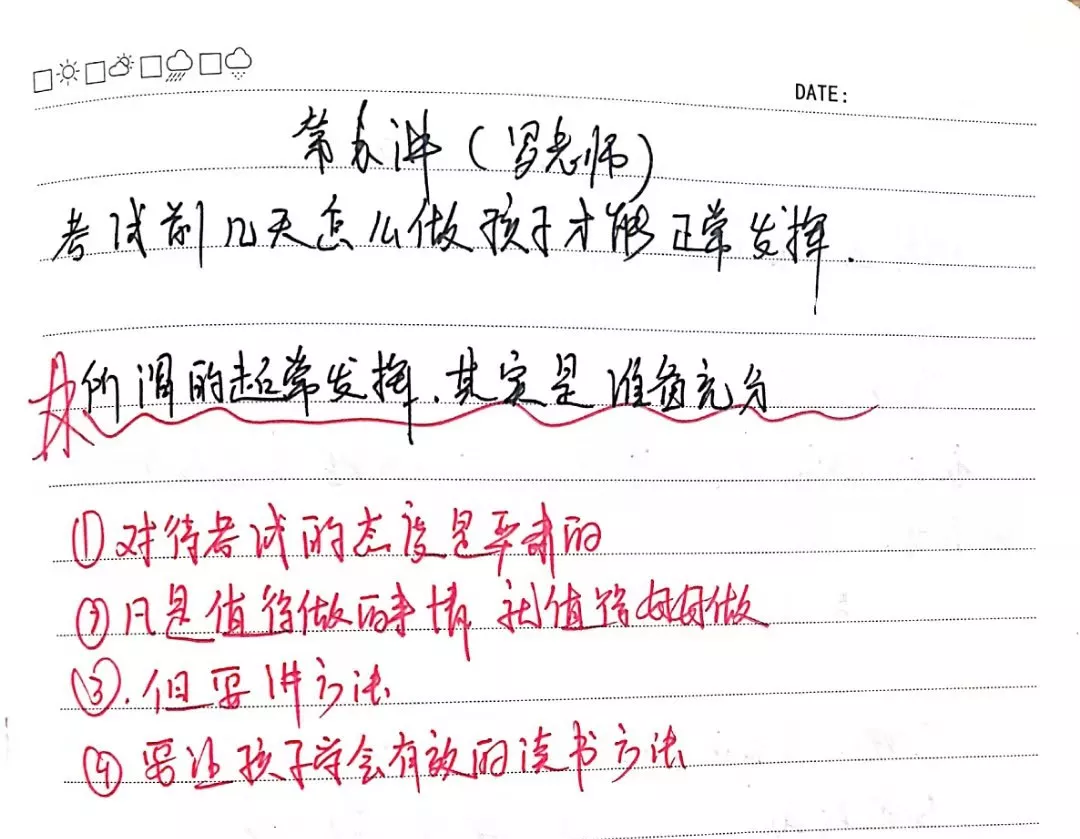 DATE:
第九讲（冯老师）
考试前几天怎么做孩子才能正常发挥.
所谓的超常发挥、其实是准备充分
①对待考试的态度是严肃的
②凡是值得做的事情 就值得好好做
③.但要讲方法
④要让孩子学会有效的读书方法